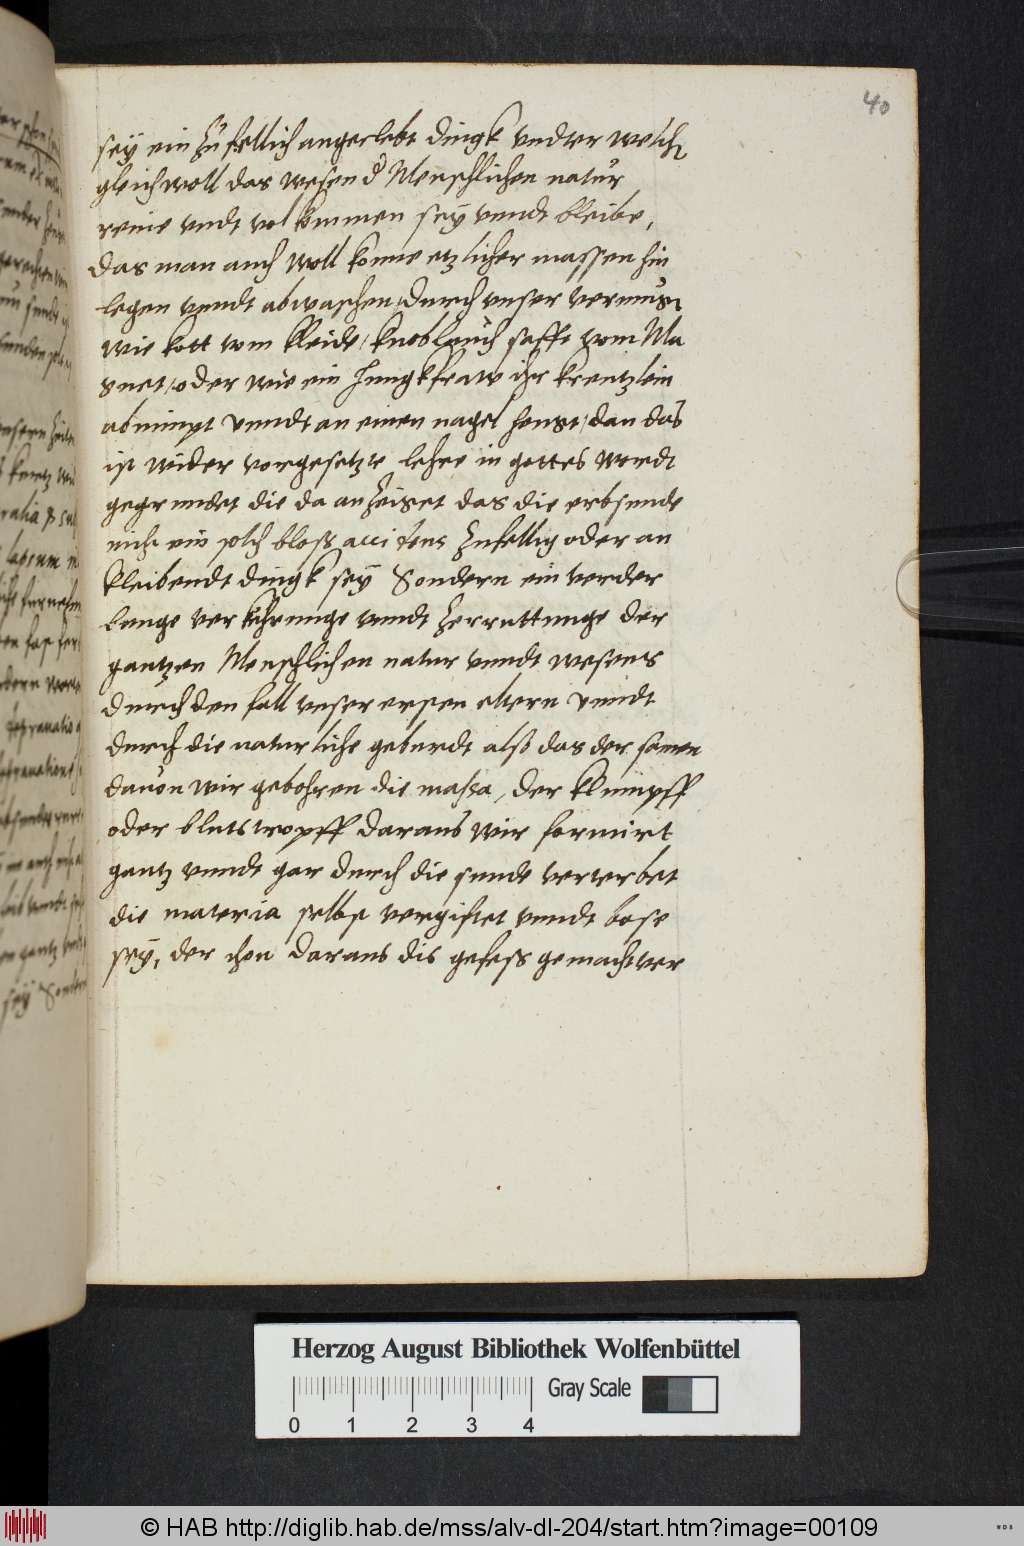 40
sey ein zufellich angeclebt dingk vndter welch
gleichwoll das wesen d Menschlichen natur
reine vndt volkommen sey vnndt bleibe,
das man auch woll konne etzlicher massen hin
legen vnndt abwaschen durch vnser vermug
wie kott vom kleide / knoblauch saffe vom Ma
gnet / oder wie ein Jungkfraw ihr krentzlein
abnimpt vnndt an einen nagel hengt / dan das
ist wider vorgesetzte lehre in gottes wordt
gegrundet die da anzeiget das die erbsunde
nicht ein solch bloß accidens zufellig oder an
kleibendt dingk sey Sondern ein
verkehrunge vnndt zerruttunge der
gantzen Menschlichen natur vnndt wesens
durch den fall vnser ersten eltern vnndt
durch die naturliche geburdt alß das der samen
dauon wir gebohren die massa, der klumpff
oder blutstropff daraus wir formirt
gantz vnndt gar durch die sunde verterbet
die materia selbst vergiftet vnndt bose
sey, der thon daraus dis gefess gemacht ver
Herzog August Bibliothek Wolfenbüttel
Gray Scale
0 1 2 3 4
© HAB http://diglib.hab.de/mss/alv-dl-204/start.htm?image=00109